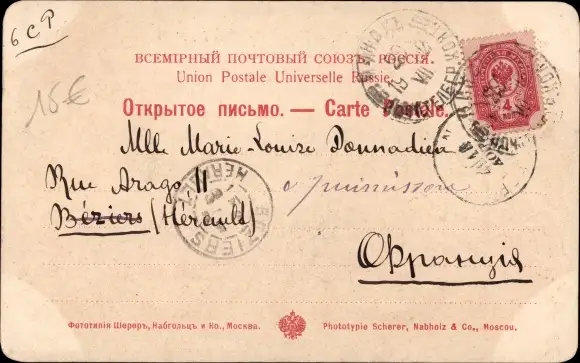 6 CP
ВСЕМІРНЫЙ ПОЧТОВЫЙ СОЮЗЪ. РОССІЯ.
Union Postale Universelle Russie.
15€
Открытое письмо. — Carte Postale.
4
Mlle Marie-Louise Donnadieu
Rue Arago 11
Béziers (Hérault)
BEZIERS
HERAULT
Франція
Фототипія Шереръ, Набгольцъ и Ко., Москва.
Phototypie Scherer, Nabholz & Co., Moscou.